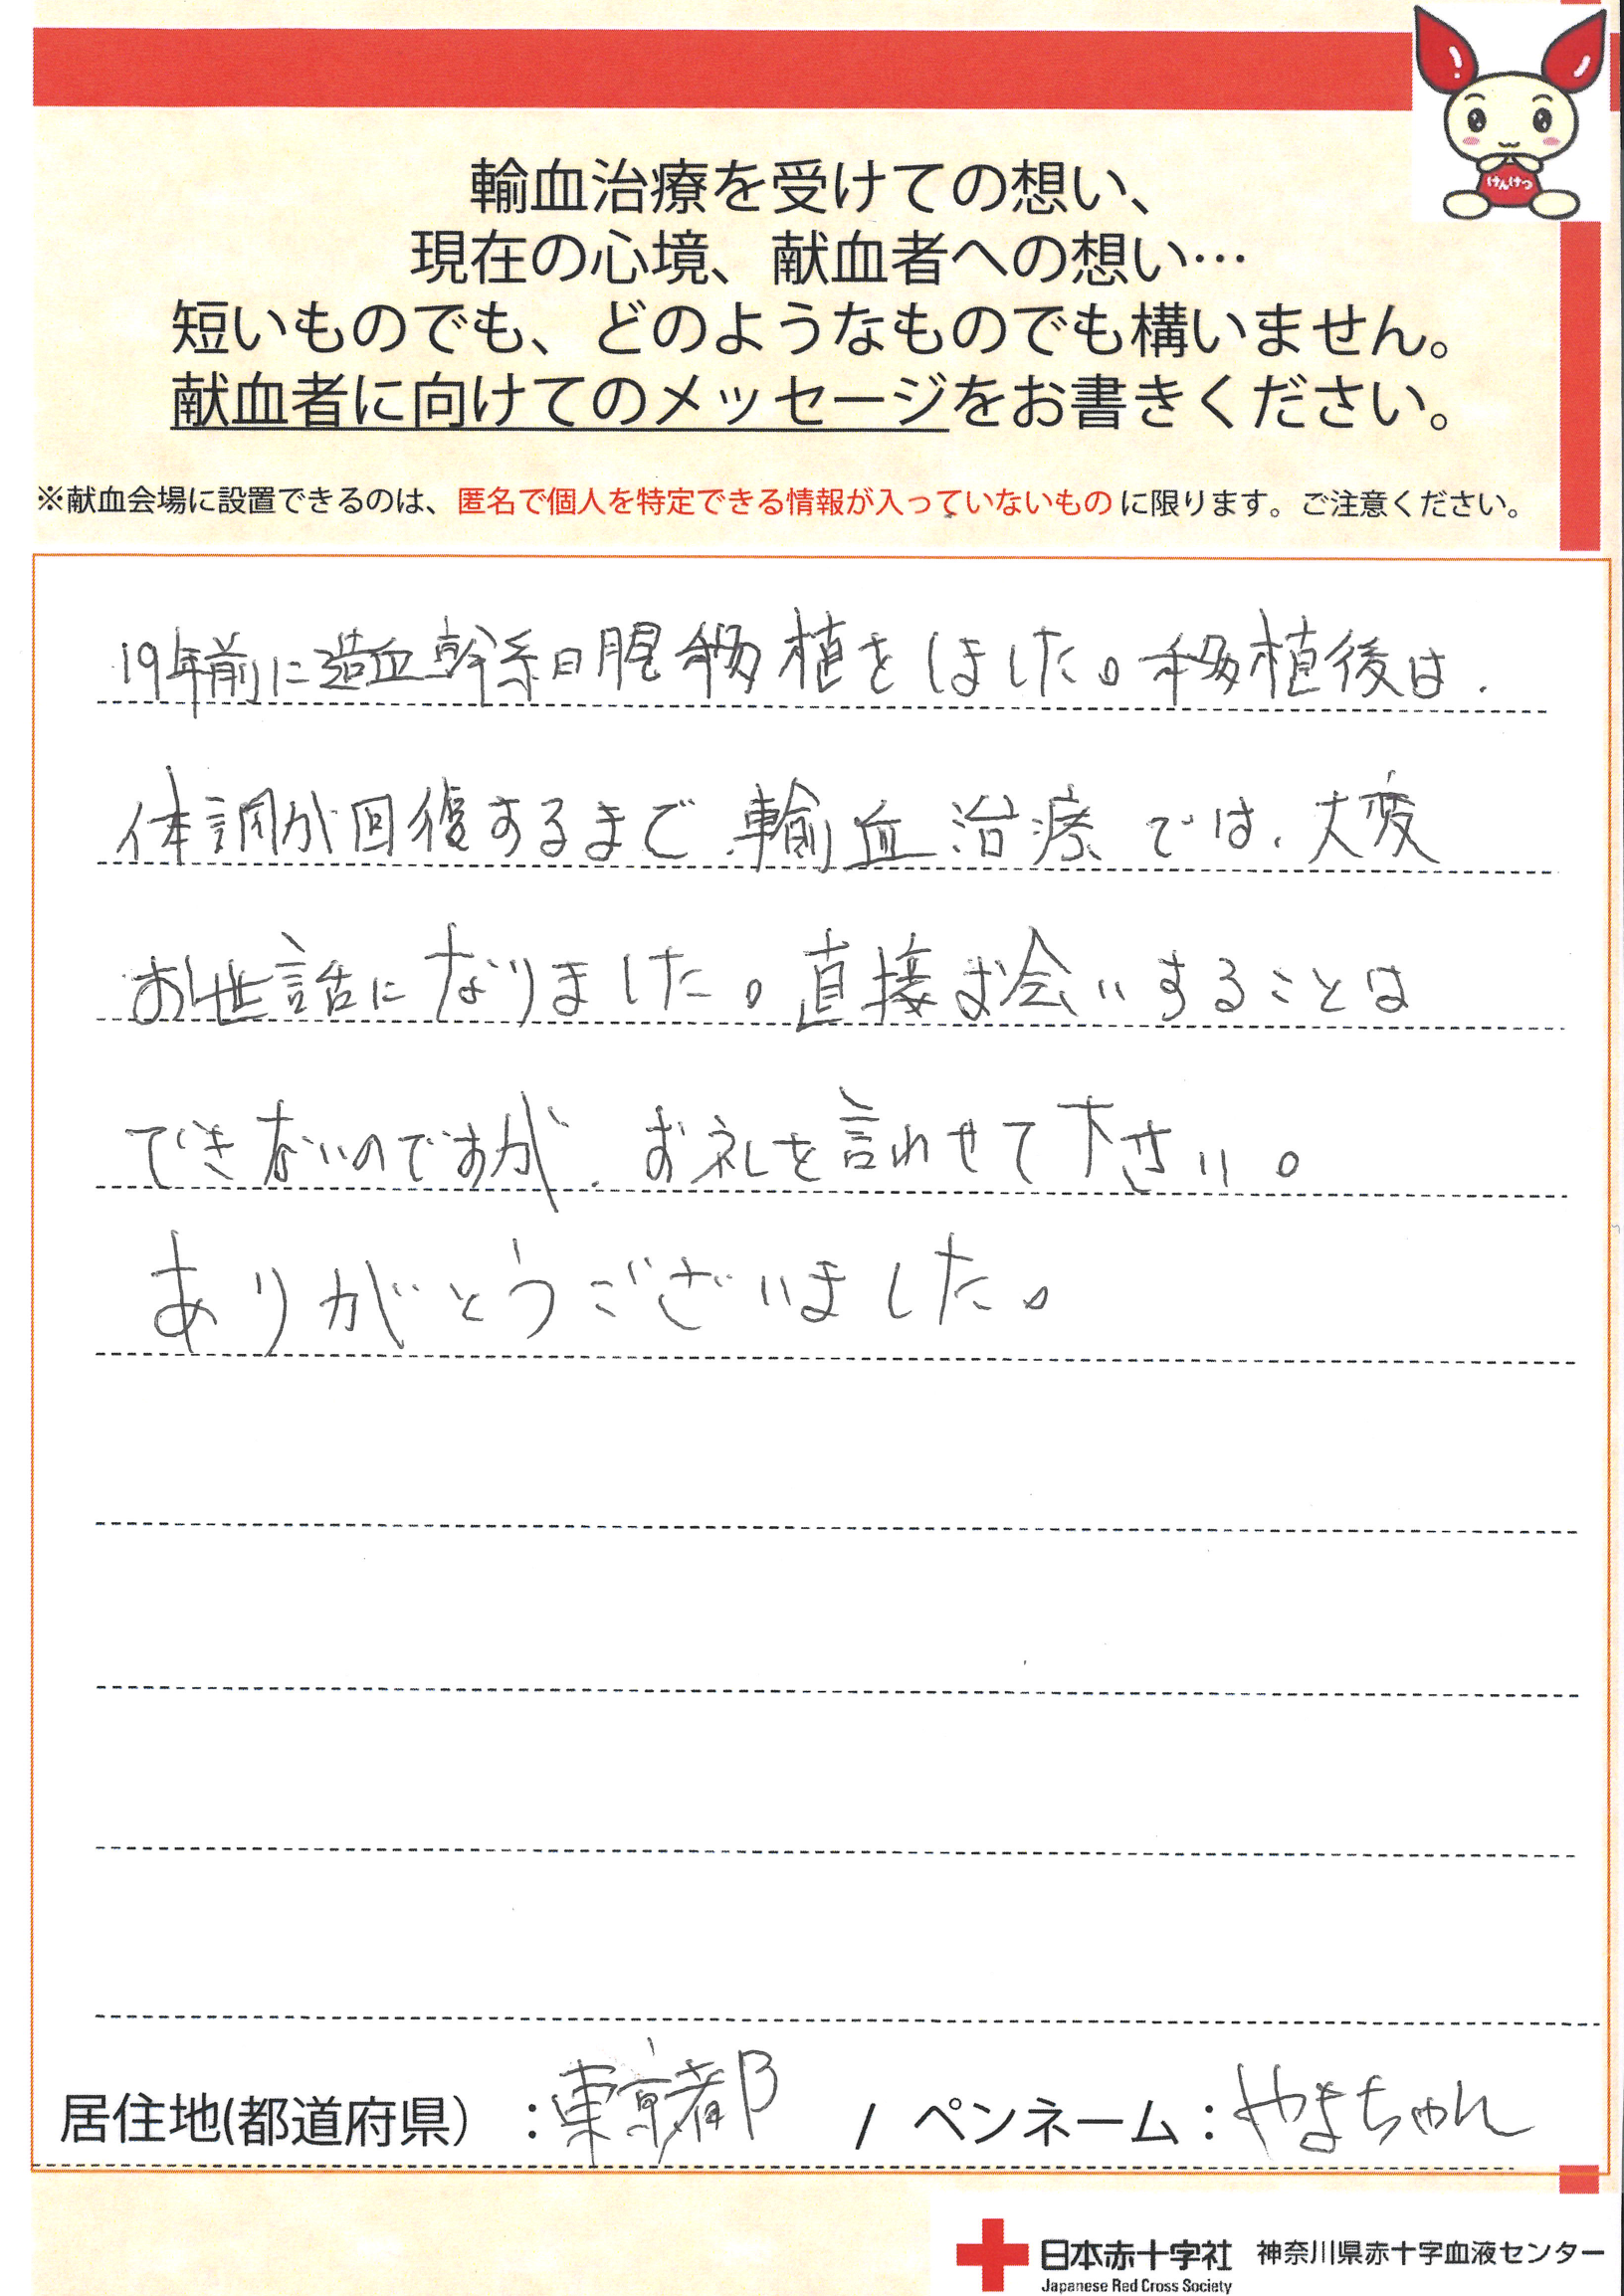 けんけつ
輸血治療を受けての想い、
現在の心境、献血者への想い…
短いものでも、どのようなものでも構いません。
献血者に向けてのメッセージをお書きください。
※献血会場に設置できるのは、匿名で個人を特定できる情報が入っていないものに限ります。ご注意ください。
19年前に造血幹細胞移植をしました。移植後は、
体調が回復するまで、輸血治療では、大変
お世話になりました。直接お会いすることは
できないのですが、お礼を言わせて下さい。
ありがとうございました。
居住地(都道府県）：東京都 / ペンネーム：やまちゃん
日本赤十字社 神奈川県赤十字血液センター
Japanese Red Cross Society